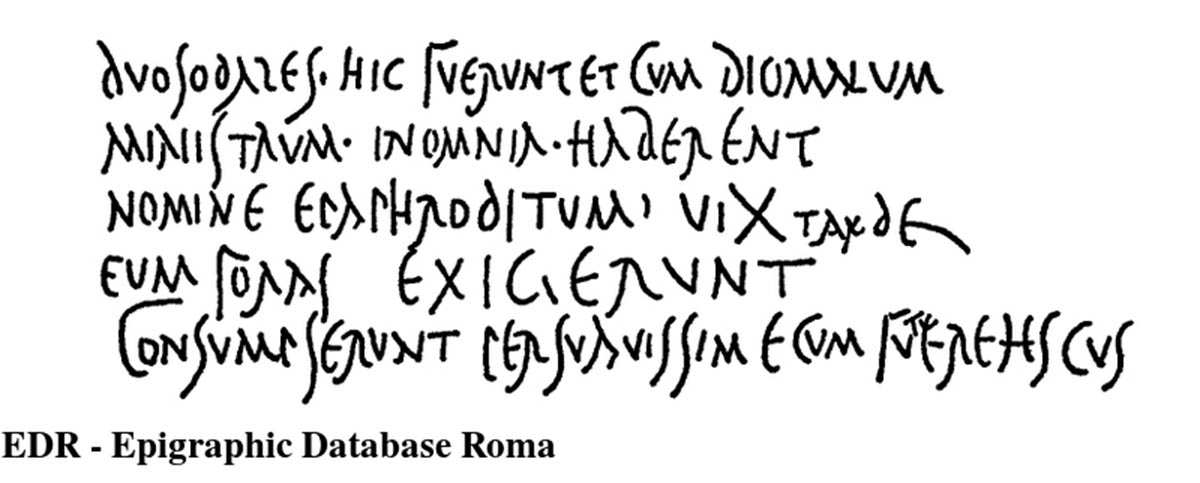 DVO SODALES· HIC FVERVNT ET CVM DIO MALVM
MINISTRVM· IN OMNIA· HABERENT
NOMINE EPAPHRODITVM' VIX TARDE
EVM FORAS EXIGERVNT
CONSVMPSERVNT PERSVAVISSIME CVM FVTERE HS CVS
EDR - Epigraphic Database Roma